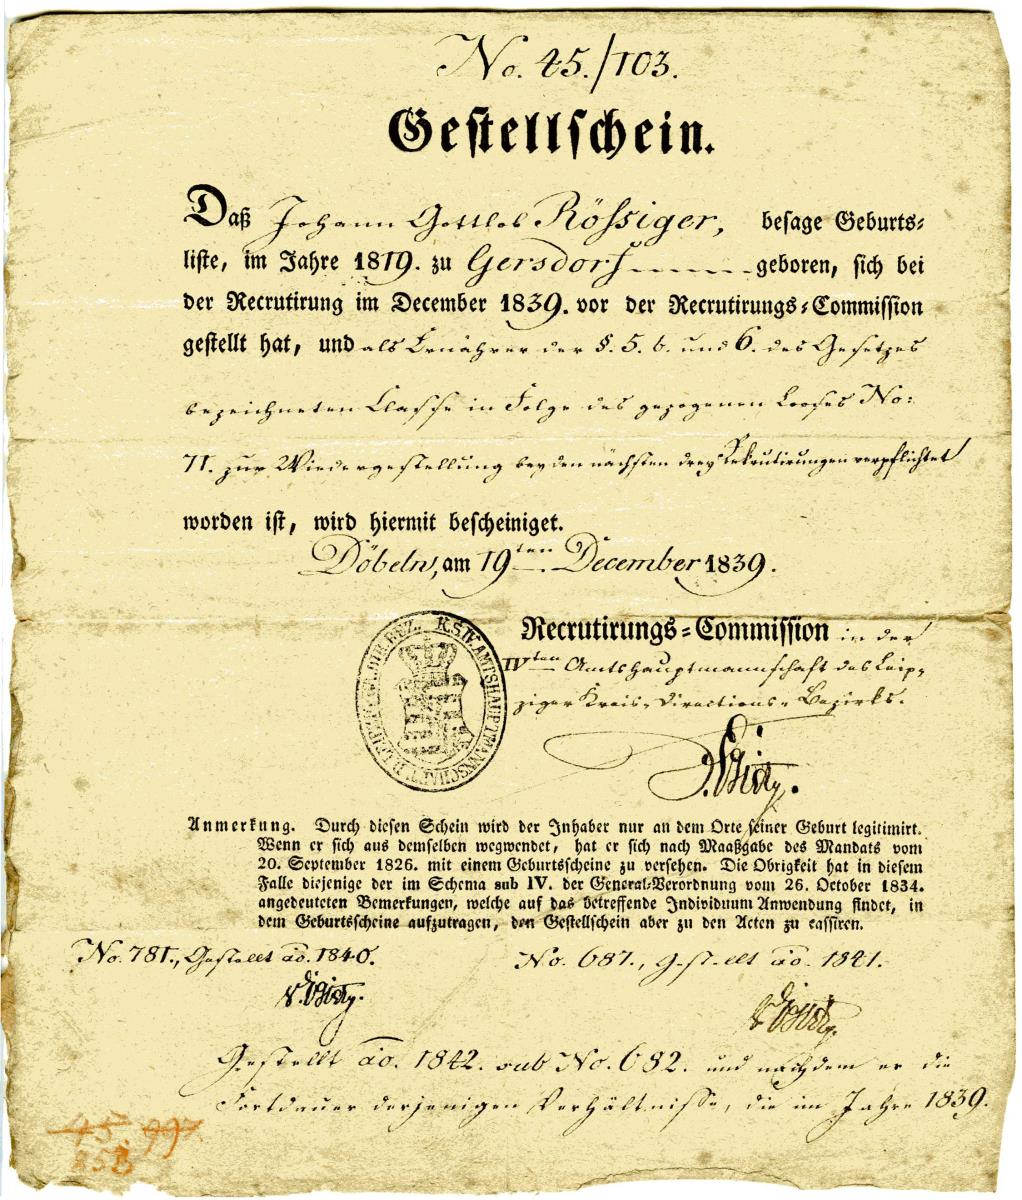 No. 45./103.
Gestellschein.
Daß Johann Gottlob Rößiger, besage Geburts-
liste, im Jahre 1819. zu Gersdorf geboren, sich bei
der Recrutirung im December 1839. vor der Recrutirungs-Commission
gestellt hat, und als Ernährer der §. 5. b. und 6. des Gesetzes
bezeichneten Classe in Folge des gezogenen Looses No:
71. zur Wiedergestellung bey den nächsten drey Rekrutirungen verpflichtet
worden ist, wird hiermit bescheiniget.
Döbeln, am 19ten December 1839.
K. S. IV. AMTSHAUPTMANNSCHAFT D. LEIPZ. KR. DIR. BEZ.
Recrutirungs-Commission in der
IVten Amtshauptmannschaft des Leip-
ziger Kreis-Directions-Bezirks.
Anmerkung. Durch diesen Schein wird der Inhaber nur an dem Orte seiner Geburt legitimirt.
Wenn er sich aus demselben wegwendet, hat er sich nach Maaßgabe des Mandats vom
20. September 1826. mit einem Geburtsscheine zu versehen. Die Obrigkeit hat in diesem
Falle diejenige der im Schema sub IV. der General-Verordnung vom 26. October 1834.
angedeuteten Bemerkungen, welche auf das betreffende Individuum Anwendung findet, in
dem Geburtsscheine aufzutragen, den Gestellschein aber zu den Acten zu cassiren.
No. 781., Gestellt ao. 1840.
No. 687., gestellt ao. 1841.
Gestellt ao. 1842. sub No. 682. und nachdem er die
Fortdauer derjenigen Verhältnisse, die im Jahre 1839.
45. 99.